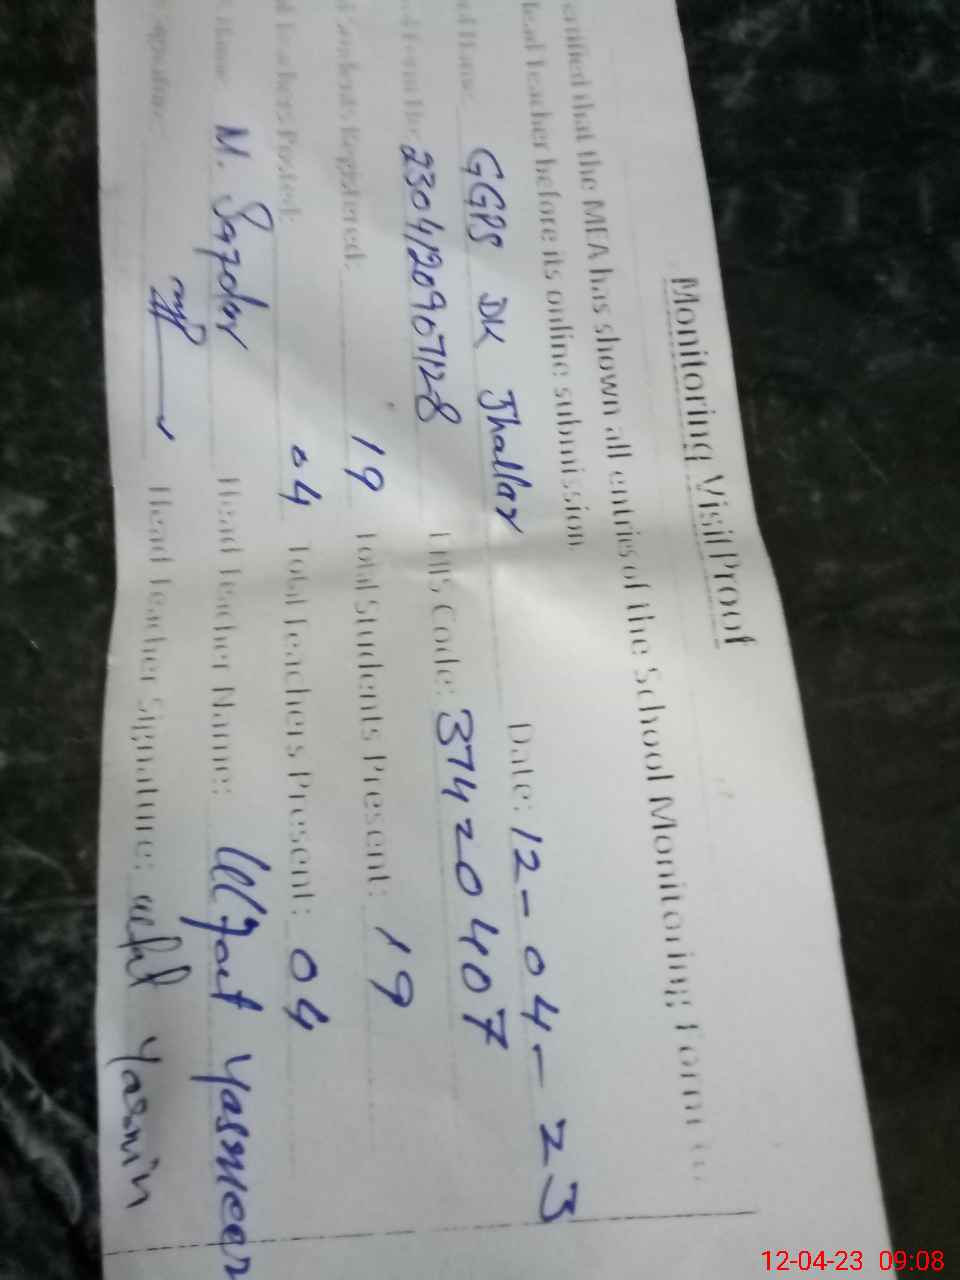 Monitoring Visit Proof
ertified that the MEA has shown all entries of the School Monitoring Form to
Head Teacher before its online submission.
ol Name: GGPS DK Jhallar Date: 12-04-23
230412096712-8 EMIS Code: 37420407
l Students Registered: 19 Total Students Present: 19
l Teachers Posted: 04 Total Teachers Present: 04
Name M. Safdar Head Teacher Name: Ulfat Yasmeen
ignature: Head Teacher Signature: Ulfat Yasmin
12-04-23 09:08